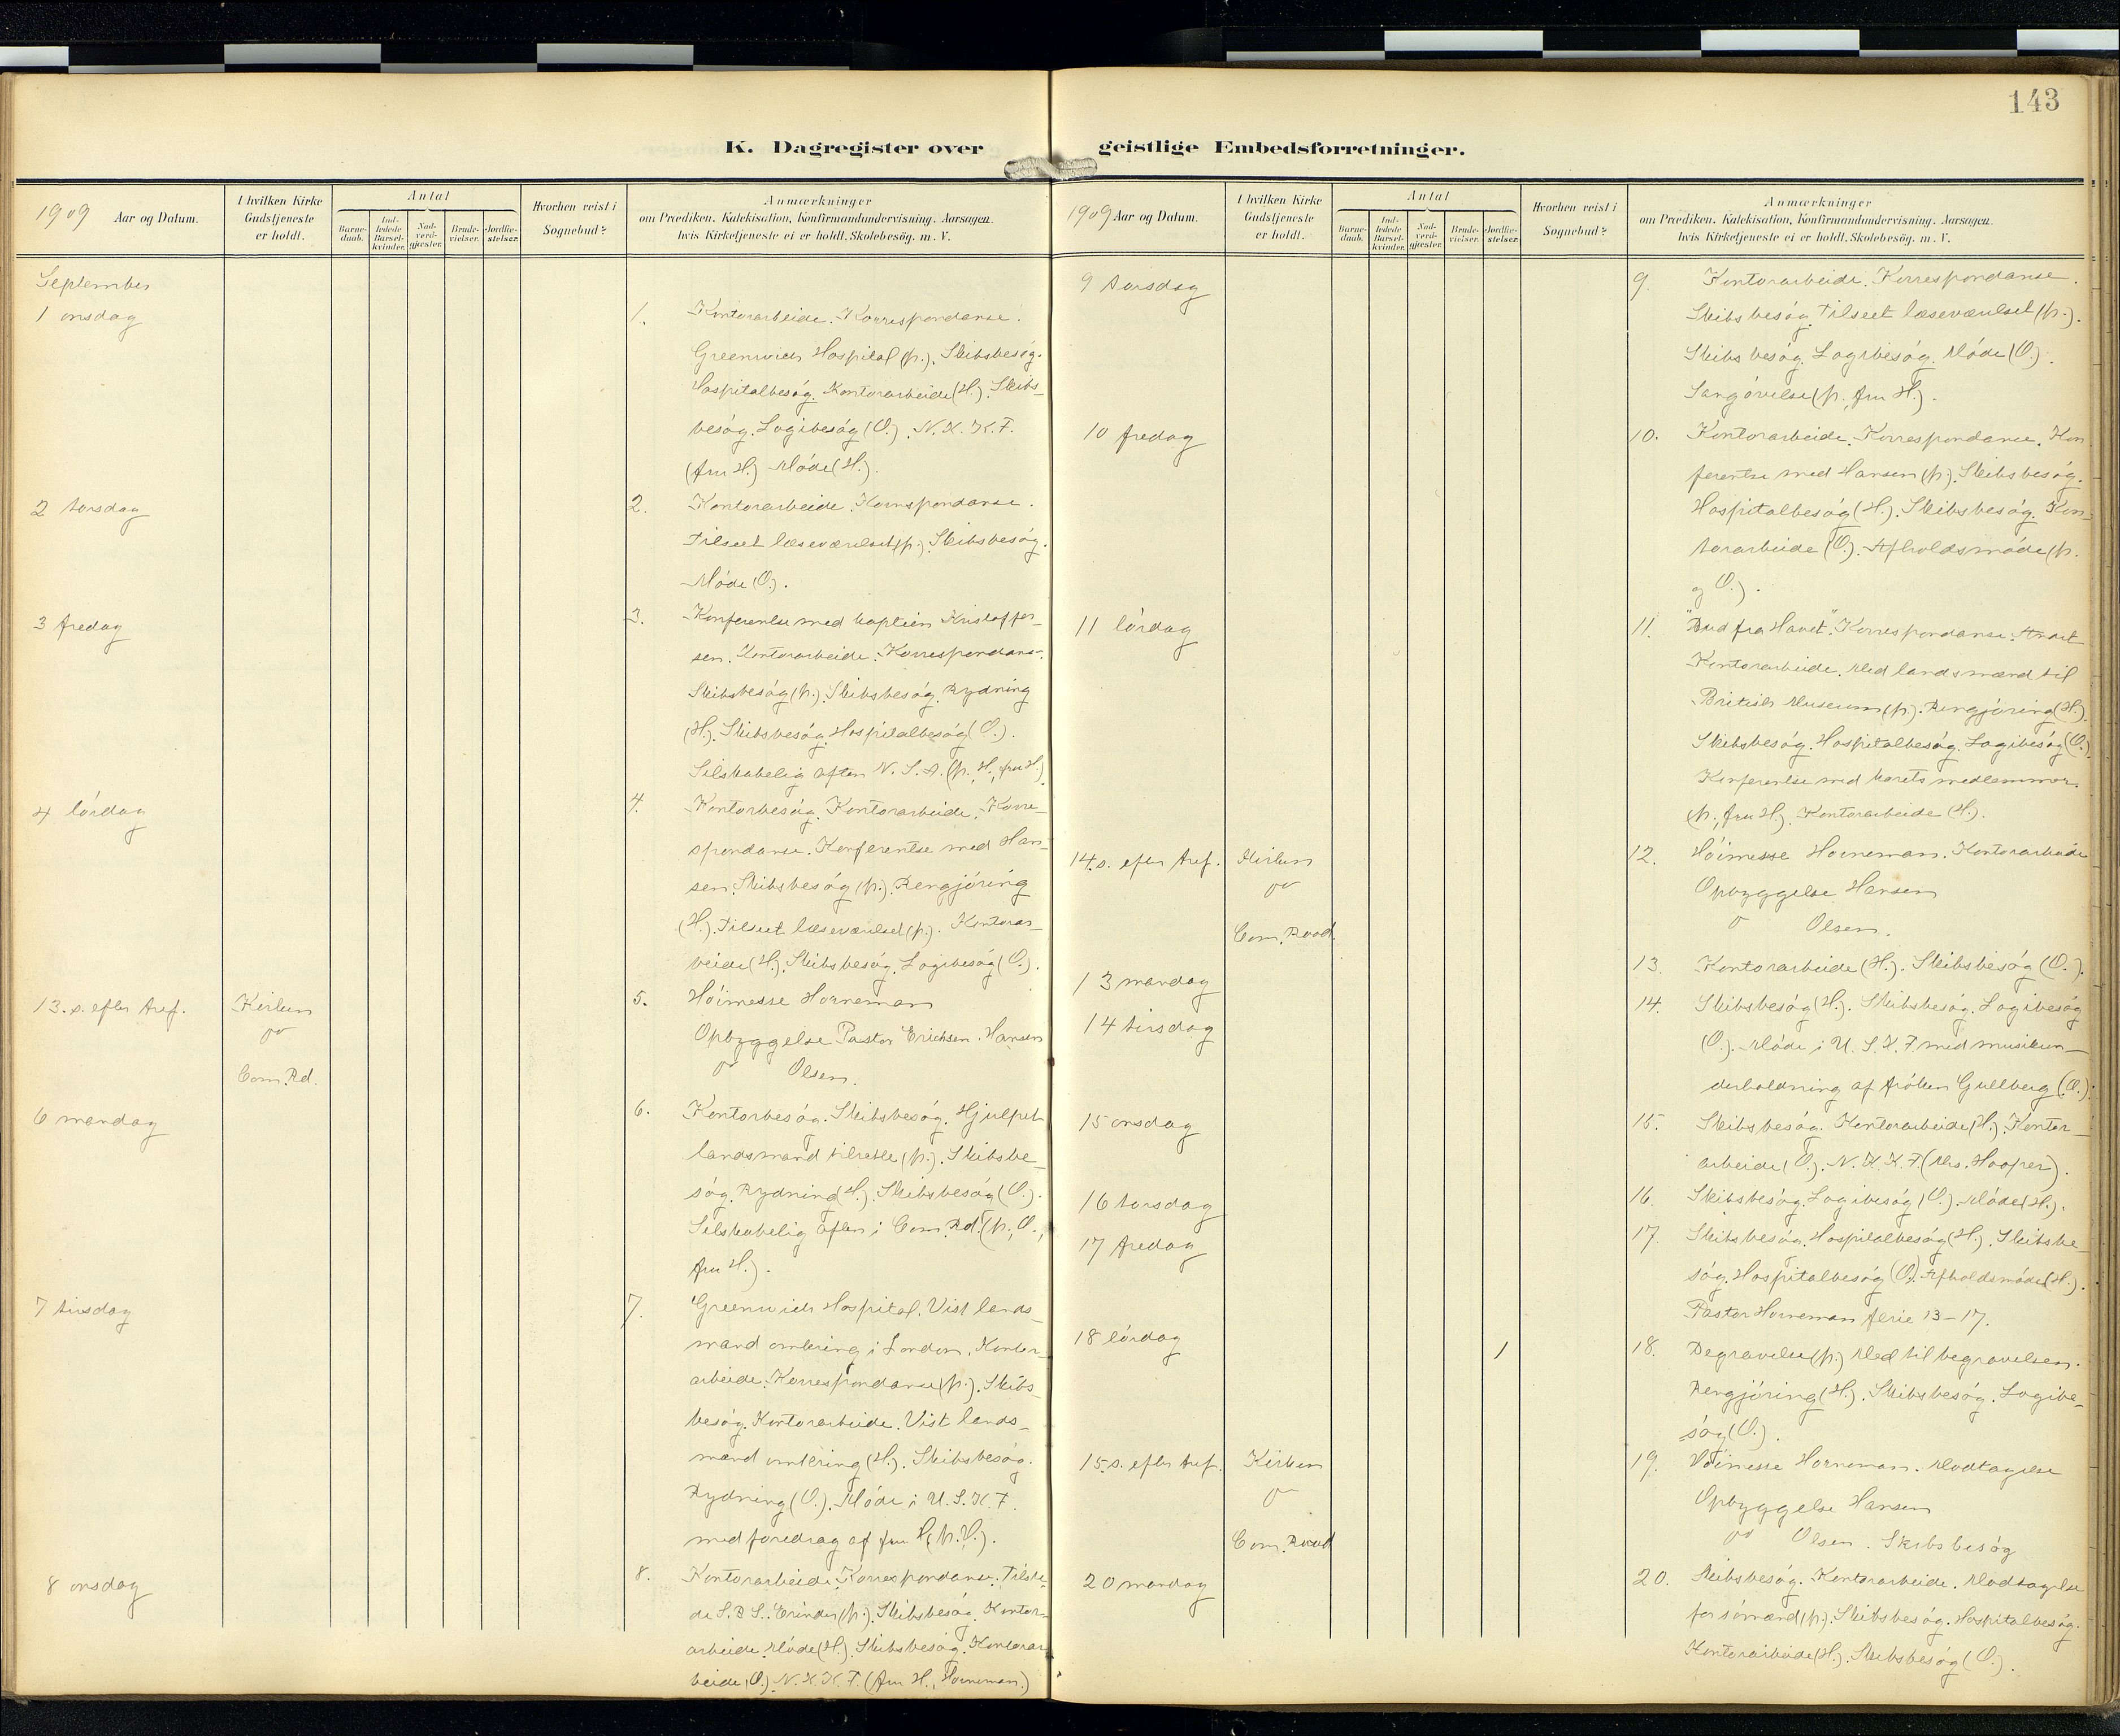 143
K. Dagregister over geistlige Embedsforretninger.
1909 Aar og Datum.
I hvilken Kirke Gudstjeneste er holdt.
Antal
Barnedaab.
Indledede Barselkvinder.
Nadverdgjæster.
Brudevielser.
Jordfæstelser.
Hvorhen reist i Sognebud?
Anmærkninger
om Prædiken, Katekisation, Konfirmandundervisning. Aarsagen,
hvis Kirketjeneste ei er holdt. Skolebesøg. m. V.
September
1 onsdag
1. Kontorarbeide. Korrespondanse.
Greenwich Hospital (p.). Skibsbesög.
Hospitalbesög. Kontorarbeide (H.). Skibs-
besög. Logibesög (O.). N. K. K. F.
(fru H.) Möde (H.).
2 torsdag
2. Kontorarbeide. Korrespondanse.
Tilseet læseværelset (p.). Skibsbesög.
Möde (O.).
3 fredag
3. Konferentse med kaptein Kristoffer-
sen. Kontorarbeide. Korrespondanse.
Skibsbesög (p.). Skibsbesög. Rydning
(H.). Skibsbesög. Hospitalbesög (O.).
Selskabelig aften N. S. A. (p., H., fru H.)
4 lördag
4. Kontorbesög. Kontorarbeide. Korre-
spondanse. Konferentse med Han-
sen. Skibsbesög (p.). Rengjöring
(H.). Tilseet læseværelset (p.). Kontorar-
beide (H.). Skibsbesög. Logibesög (O.).
13. s. efter tref.
Kirken
5. Höimesse Horneman
Opbyggelse Pastor Erichsen. Hansen
Com. Rd.
Olsen.
6 mandag
6. Kontorbesög. Skibsbesög. Hjulpet
landsmand tilrette (p.). Skibsbe-
sög. Rydning (H.). Skibsbesög (O.).
Selskabelig aften i Com. Rd. (p., O.,
fru H.).
7 tirsdag
7. Greenwich Hospital. Vist lands-
mænd omkring i London. Kontor-
arbeide. Korrespondanse (p.). Skibs-
besög. Kontorarbeide. Vist lands-
mænd omkring (H.). Skibsbesög.
Rydning (O.). Möde i U. S. K. F.
med foredrag af fru
8 onsdag
8. Kontorarbeide. Korrespondanse. Tilste-
de S. B. S. Erinder (p.). Skibsbesög. Kontor-
arbeide. Möde (H.). Skibsbesög. Kontorar-
beide (O.). N. K. K. F. (fru H., Horneman.)
1909 Aar og Datum.
I hvilken Kirke Gudstjeneste er holdt.
Antal
Barnedaab.
Indledede Barselkvinder.
Nadverdgjæster.
Brudevielser.
Jordfæstelser.
Hvorhen reist i Sognebud?
Anmærkninger
om Prædiken, Katekisation, Konfirmandundervisning. Aarsagen,
hvis Kirketjeneste ei er holdt. Skolebesøg. m. V.
9 torsdag
9. Kontorarbeide. Korrespondanse.
Skibsbesög. Tilseet læseværelset (p.).
Skibsbesög. Logibesög. Möde (O.).
Sangövelse (p., fru H.).
10 fredag
10. Kontorarbeide. Korrespondanse. Kon
ferentse med Hansen (p.). Skibsbesög.
Hospitalbesög (H.). Skibsbesög. Kon-
torarbeide (O.). Afholdsmöde (p.
og O.).
11 lördag
11. "Bud fra Havet". Korrespondanse.
Kontorarbeide. Med landsmænd til
British Museum (p.). Rengjöring (H.).
Skibsbesög. Hospitalbesög. Logibesög (O.)
Konferentse med korets medlemmer.
(p., fru H.). Kontorarbeide (H.).
14. s. efter tref.
Kirken
12. Höimesse Horneman. Kontorarbeide
Opbyggelse Hansen
Com. Road.
Olsen.
13 mandag
13. Kontorarbeide (H.). Skibsbesög (O.).
14 tirsdag
14. Skibsbesög (H.). Skibsbesög. Logibesög
(O.). Möde i U. S. K. F. med musikun-
derholdning af fröken Gullberg (O.).
15 onsdag
15. Skibsbesög. Kontorarbeide (H.). Kontor-
arbeide (O.). N. K. K. F. (Mrs. Hooper).
16 torsdag
16. Skibsbesög. Logibesög (O.). Möde (H.).
17 fredag
17. Skibsbesög. Hospitalbesög (H.). Skibsbe-
sög. Hospitalbesög (O.). Afholdsmöde (H.).
Pastor Horneman ferie 13-17.
18 lördag
1
18. Begravelse (p.). Med til begravelsen.
Rengjöring (H.). Skibsbesög. Logibe-
sög (O.).
15. s. efter tref.
Kirken
19. Höimesse Horneman. Modtagelse
Opbyggelse Hansen
Com. Road
Olsen. Skibsbesög
20 mandag
20. Skibsbesög. Kontorarbeide. Modtagelse
for sömænd (p.). Skibsbesög. Hospitalbesög.
Kontorarbeide (H.). Skibsbesög (O.).